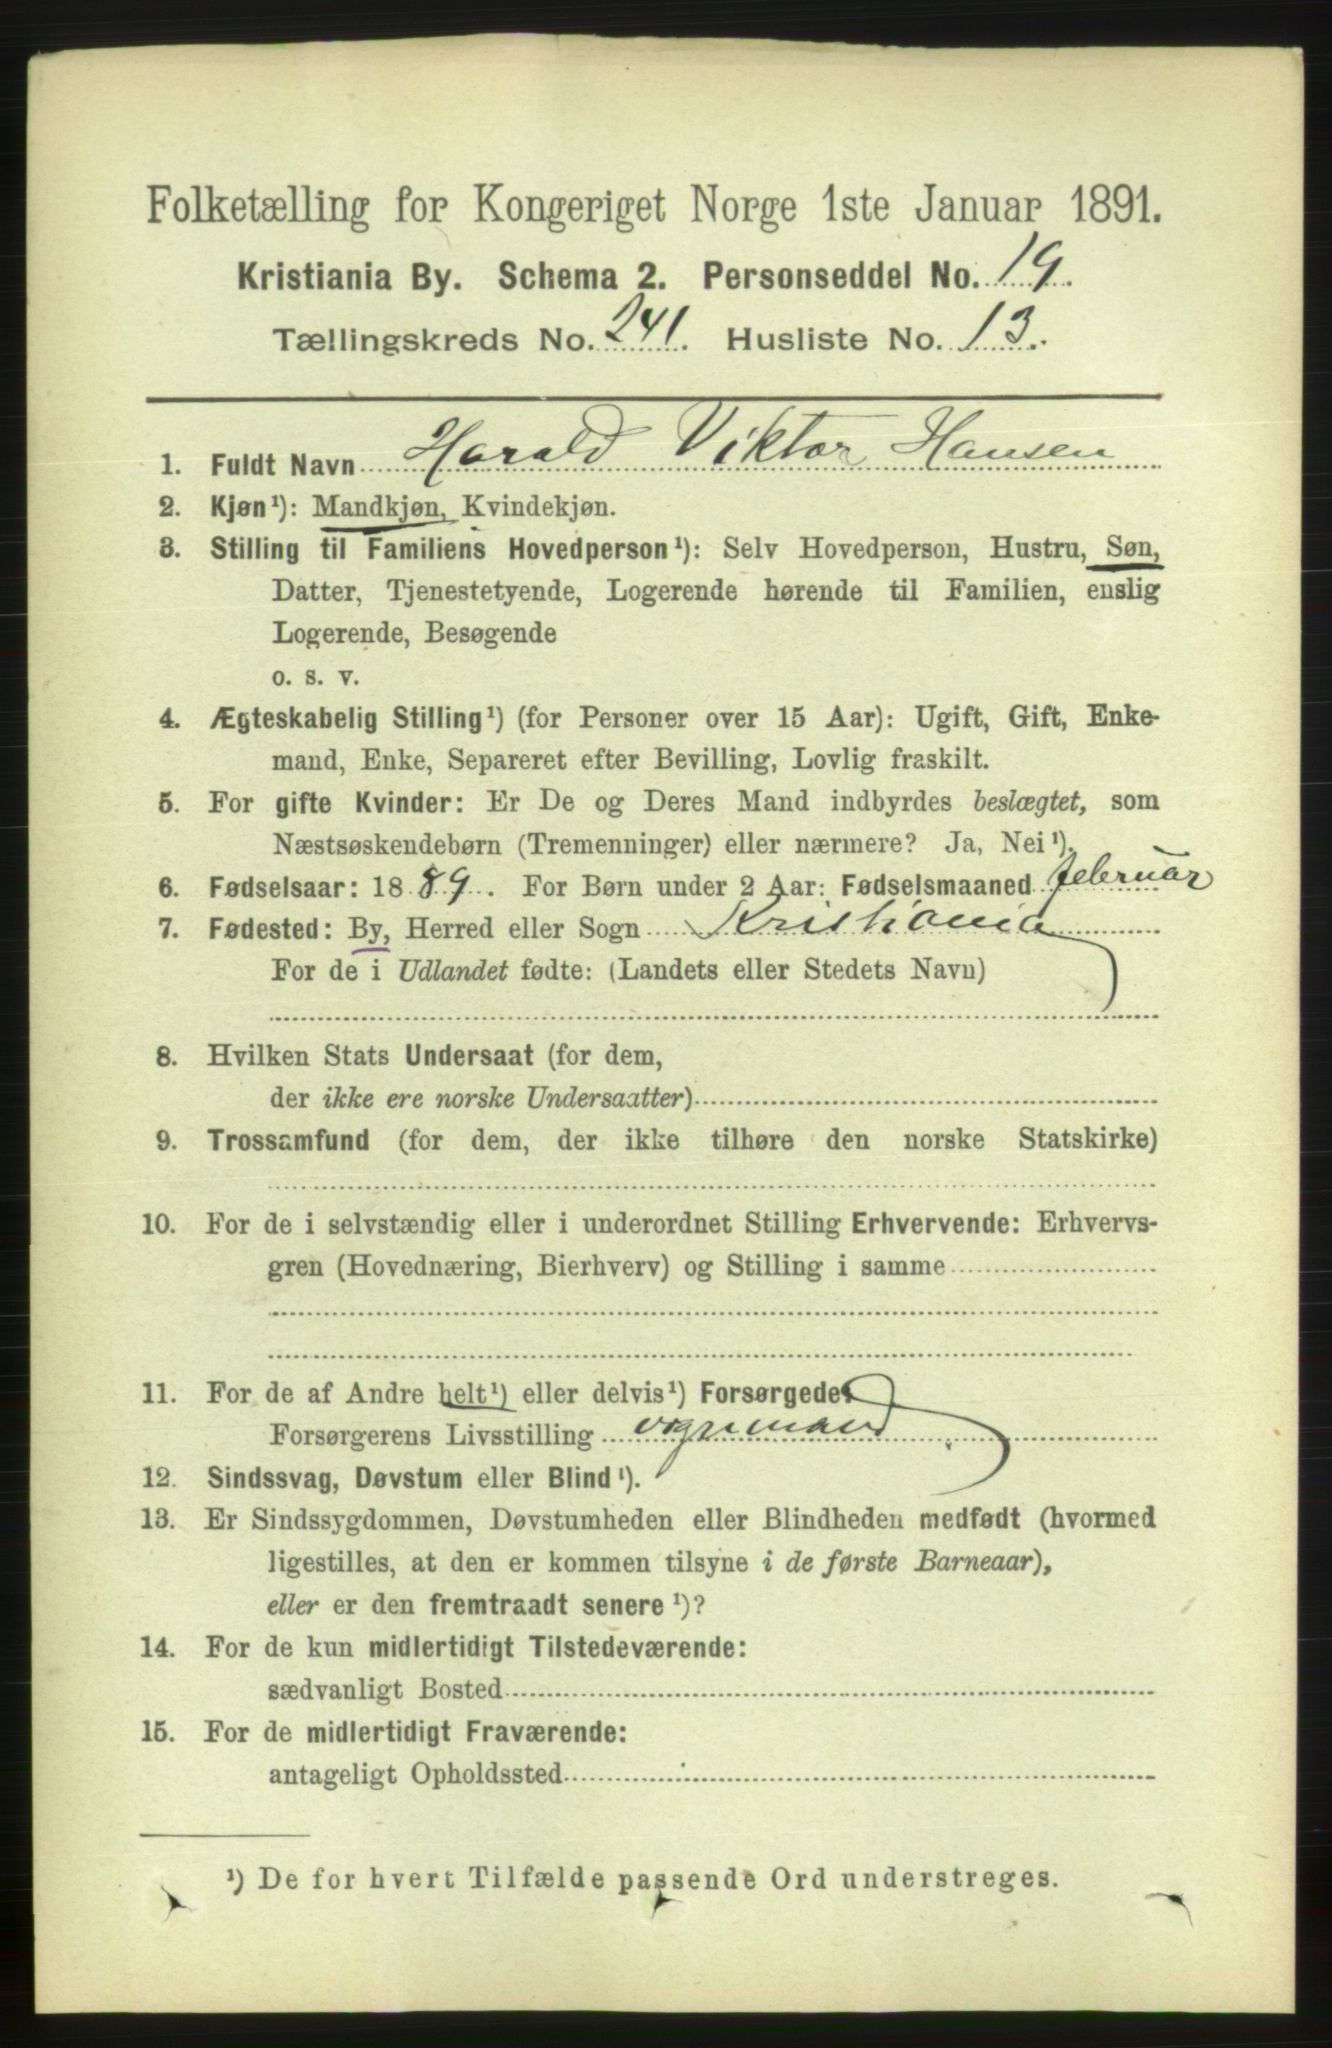 Folketælling for Kongeriget Norge 1ste Januar 1891.
Kristiania By. Schema 2. Personseddel No. 19.
Tællingskreds No. 241. Husliste No. 13.
1. Fuldt Navn Harald Viktor Hansen
2. Kjøn¹): Mandkjøn, Kvindekjøn.
3. Stilling til Familiens Hovedperson¹): Selv Hovedperson, Hustru, Søn,
Datter, Tjenestetyende, Logerende hørende til Familien, enslig
Logerende, Besøgende
o. s. v.
4. Ægteskabelig Stilling¹) (for Personer over 15 Aar): Ugift, Gift, Enke-
mand, Enke, Separeret efter Bevilling, Lovlig fraskilt.
5. For gifte Kvinder: Er De og Deres Mand indbyrdes beslægtet, som
Næstsøskendebørn (Tremenninger) eller nærmere? Ja, Nei¹).
6. Fødselsaar: 1889. For Børn under 2 Aar: Fødselsmaaned februar
7. Fødested: By, Herred eller Sogn Kristiania
For de i Udlandet fødte: (Landets eller Stedets Navn)
8. Hvilken Stats Undersaat (for dem,
der ikke ere norske Undersaatter)
9. Trossamfund (for dem, der ikke tilhøre den norske Statskirke)
10. For de i selvstændig eller i underordnet Stilling Erhvervende: Erhvervs-
gren (Hovednæring, Bierhverv) og Stilling i samme
11. For de af Andre helt¹) eller delvis¹) Forsørgede:
Forsørgerens Livsstilling vognmand
12. Sindssvag, Døvstum eller Blind¹).
13. Er Sindssygdommen, Døvstumheden eller Blindheden medfødt (hvormed
ligestilles, at den er kommen tilsyne i de første Barneaar),
eller er den fremtraadt senere¹)?
14. For de kun midlertidigt Tilstedeværende:
sædvanligt Bosted
15. For de midlertidigt Fraværende:
antageligt Opholdssted
¹) De for hvert Tilfælde passende Ord understreges.